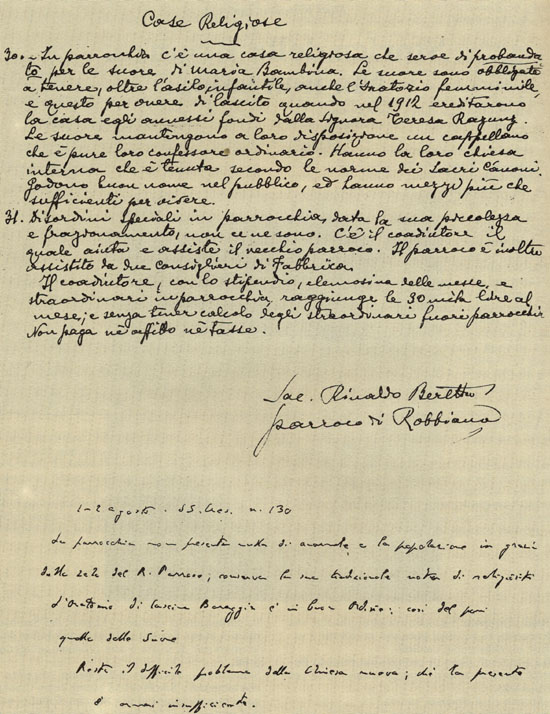 Case Religiose
30. - In parrocchia c'è una casa religiosa che serve di probanda-
to per le suore di Maria Bambina. Le suore sono obbligate
a tenere, oltre l'asilo infantile, anche l'Oratorio femminile,
e questo per onere di lascito quando nel 1912 ereditarono
la casa egli annessi fondi dalla Signora Teresa
Le suore mantengono a loro disposizione un cappellano
che è pure loro confessore ordinario. Hanno la loro chiesa
interna che è tenuta secondo le norme dei Sacri Canoni.
Godono buon nome nel pubblico, ed hanno mezzi più che
sufficienti per vivere.
31. Disordini speciali in parrocchia, data la sua piccolezza
e frazionamento, non ce ne sono. C'è il coadiutore il
quale aiuta e assiste il vecchio parroco. Il parroco è inoltre
assistito da due consiglieri di Fabbrica.
Il coadiutore, con lo stipendio, elemosina delle messe, e
straordinari in parrocchia, raggiunge le 30 mila lire al
mese; e senza tener calcolo degli straordinari fuori parrocchia
Non paga nè affitto nè tasse.
Sac. Rinaldo Beretta
parroco di Robbiano
1-2 agosto. n. 130
La parrocchia non presenta nulla di anormale e la popolazione in grazia
dello zelo del R. Parroco; conserva la sua tradizionale nota di religiosità
L'oratorio di Cascina Baraggia è in buon ordine: così del pari
quello delle Suore
Resta il difficile problema della Chiesa nuova; chè la presente
è ormai insufficiente.